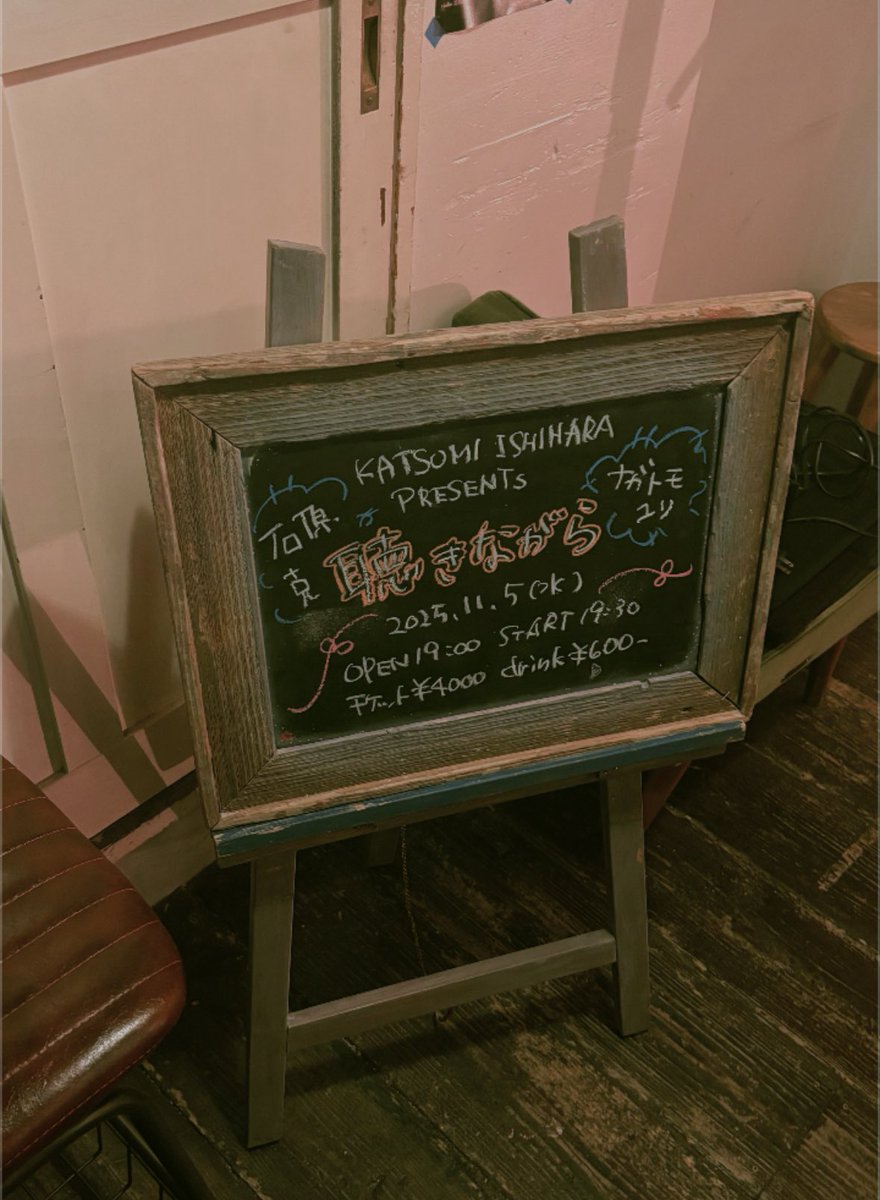 KATSOMI ISHIHARA
PRESENTS
石原
克
ナガトモ
ユリ
聴きながら
2025.11.5(水)
OPEN19:00 START19:30
チケット¥4000 drink¥600-